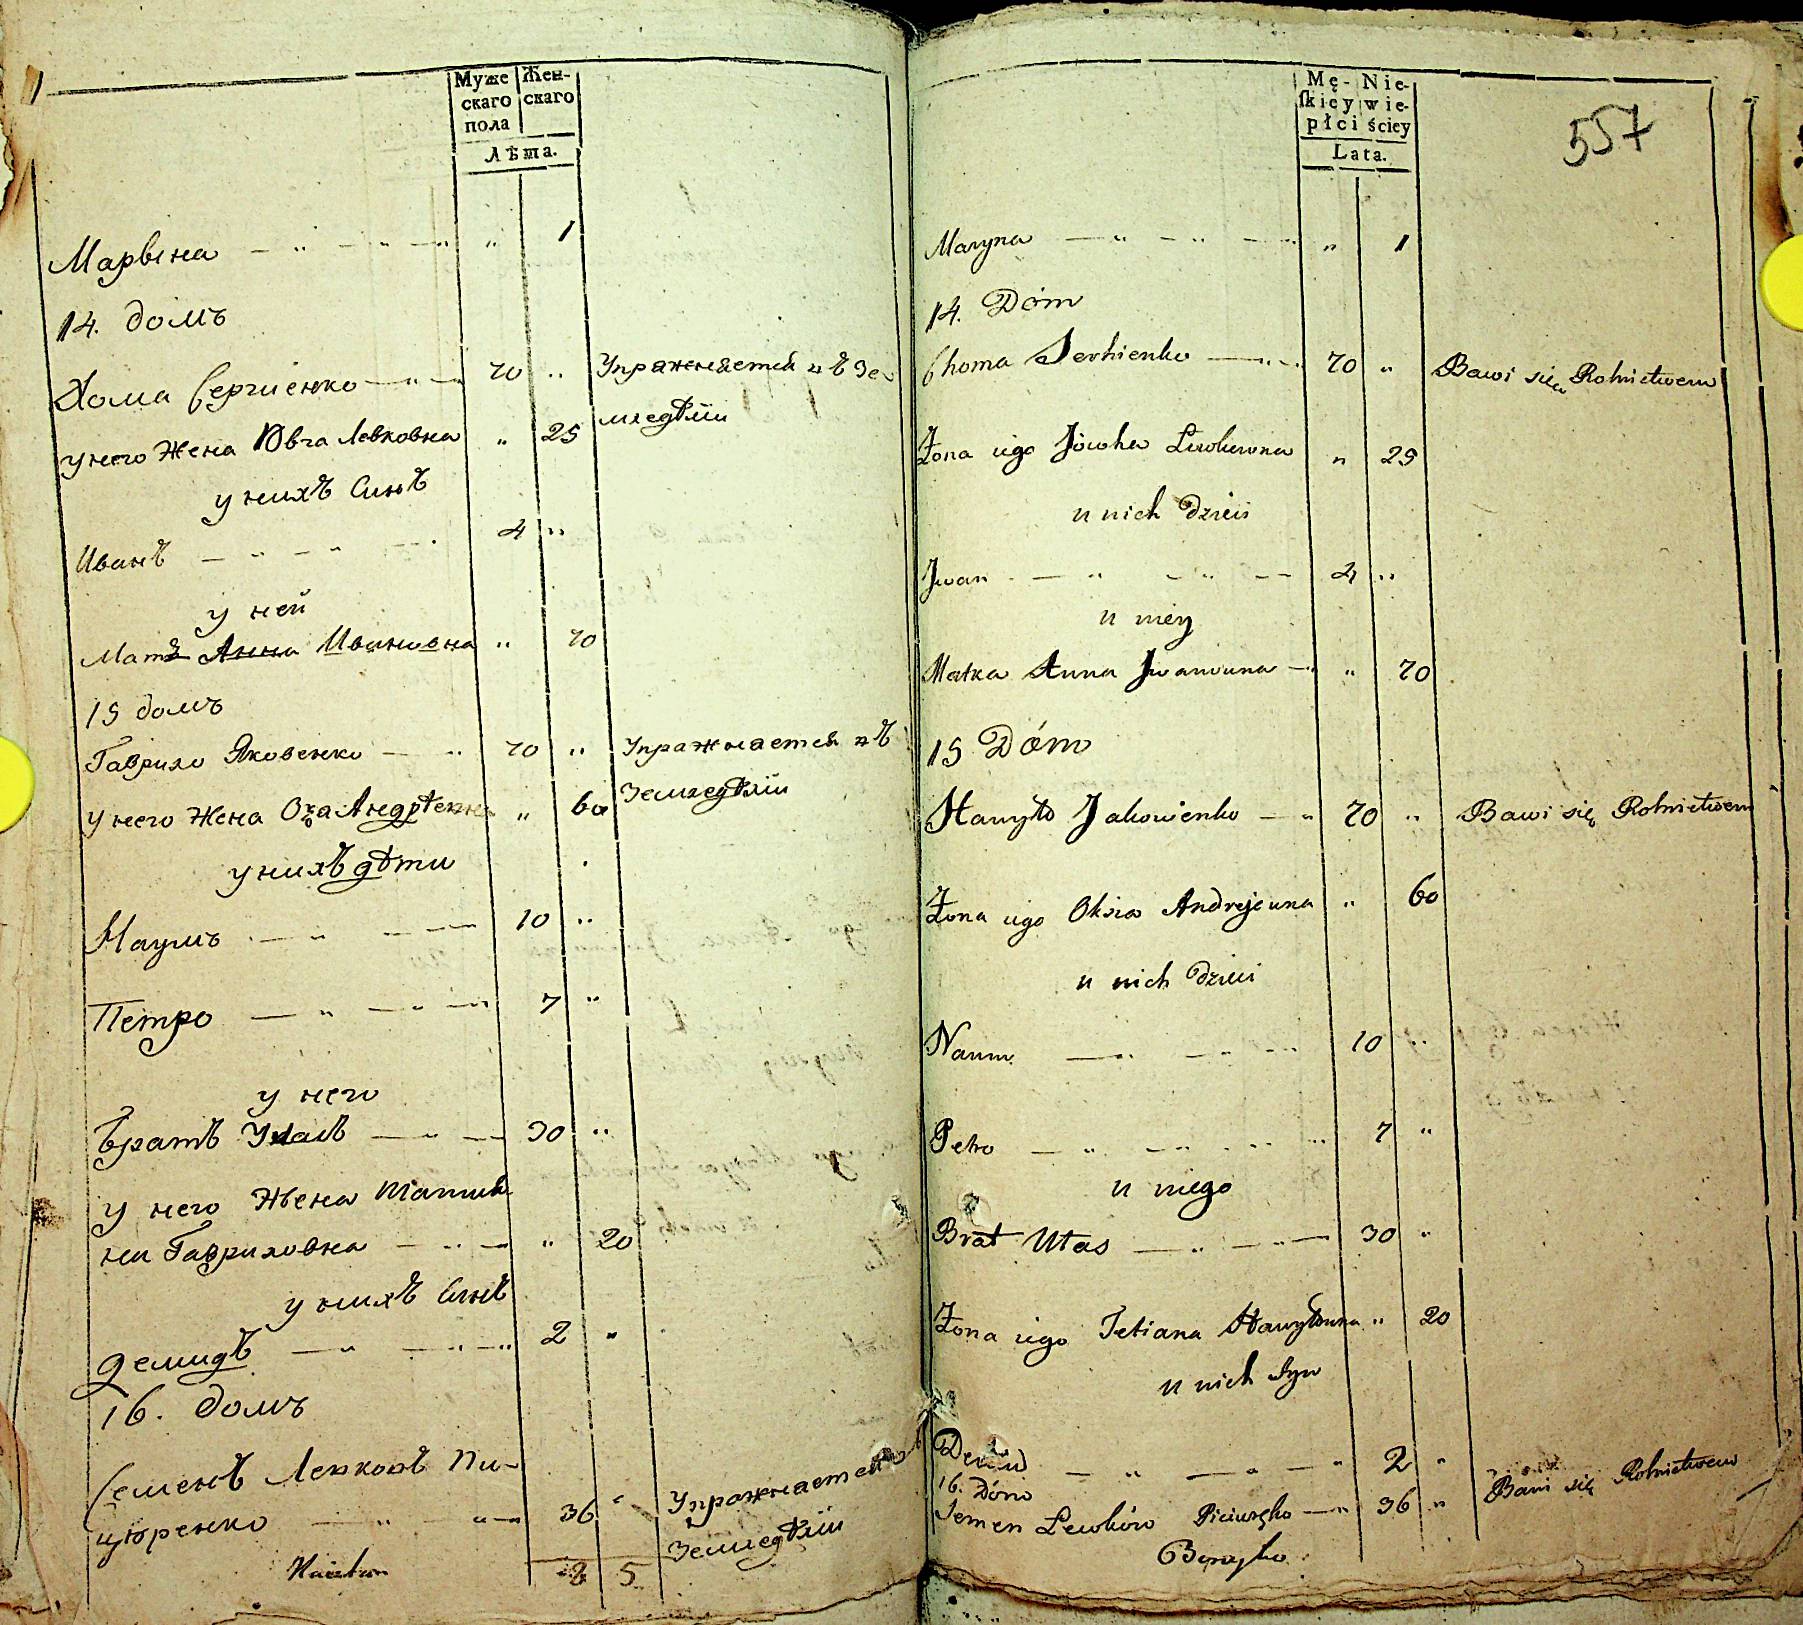 Муже
скаго
пола
Жен-
скаго
Лѣта.
Марвина — „ — „ — „ „ 1
14. домъ
Хома Сергиенко — „ — 70 „ Упражняется въ Зе-
мледѣлiи
у него Жена Ювга Левковна „ 25
у нихъ Синъ
Иванъ — „ — „ — 4 „
у ней
Матъ Анна Ивановна „ 70
15 домъ
Гаврило Яковенко — „ 70 „ Упражняется въ
Земледѣлiи
у него Жена Оѯа Андрѣевна „ 60
у нихъ дѣти
Наумъ — „ — — 10 „
Петро — „ — „ — „ 7 „
у него
Братъ Уласъ — „ — 30 „
у него Жена Татия-
на Гавриловна — „ — „ 20
у нихъ Синъ
Демидъ — „ — „ — „ 2 „
16. домъ
Семенъ Левковъ Пи-
цюренко — „ — „ — 36 „ Упражняется
Земледѣлiи
8 5
557
Mę-
skiey
płci
Nie-
wie-
ściey
Lata.
Maryna — „ — „ — „ „ 1
14. Dóm
Choma Serhienko — „ — 70 „ Bawi się Rolnictwem
Żona iego Jówha Lewkowna „ 25
u nich Dzieci
Jwan — „ — „ — — 4 „
u niey
Matka Anna Jwanowna — „ „ 70
15 Dóm
Hawryło Jakowienko — „ 70 „ Bawi się Rolnictwem
Żona iego Oksia Andrejewna „ 60
u nich Dzieci
Naum — „ — „ — 10 „
Petro — „ — „ — „ 7 „
u niego
Brat Ułas — „ — „ — 30 „
Żona iego Tetiana Hawryłowna „ 20
u nich Syn
Demid — „ — „ — „ 2 „
16. Dóm
Semen Lewków — „ 36 „ Bawi się Rolnictwem